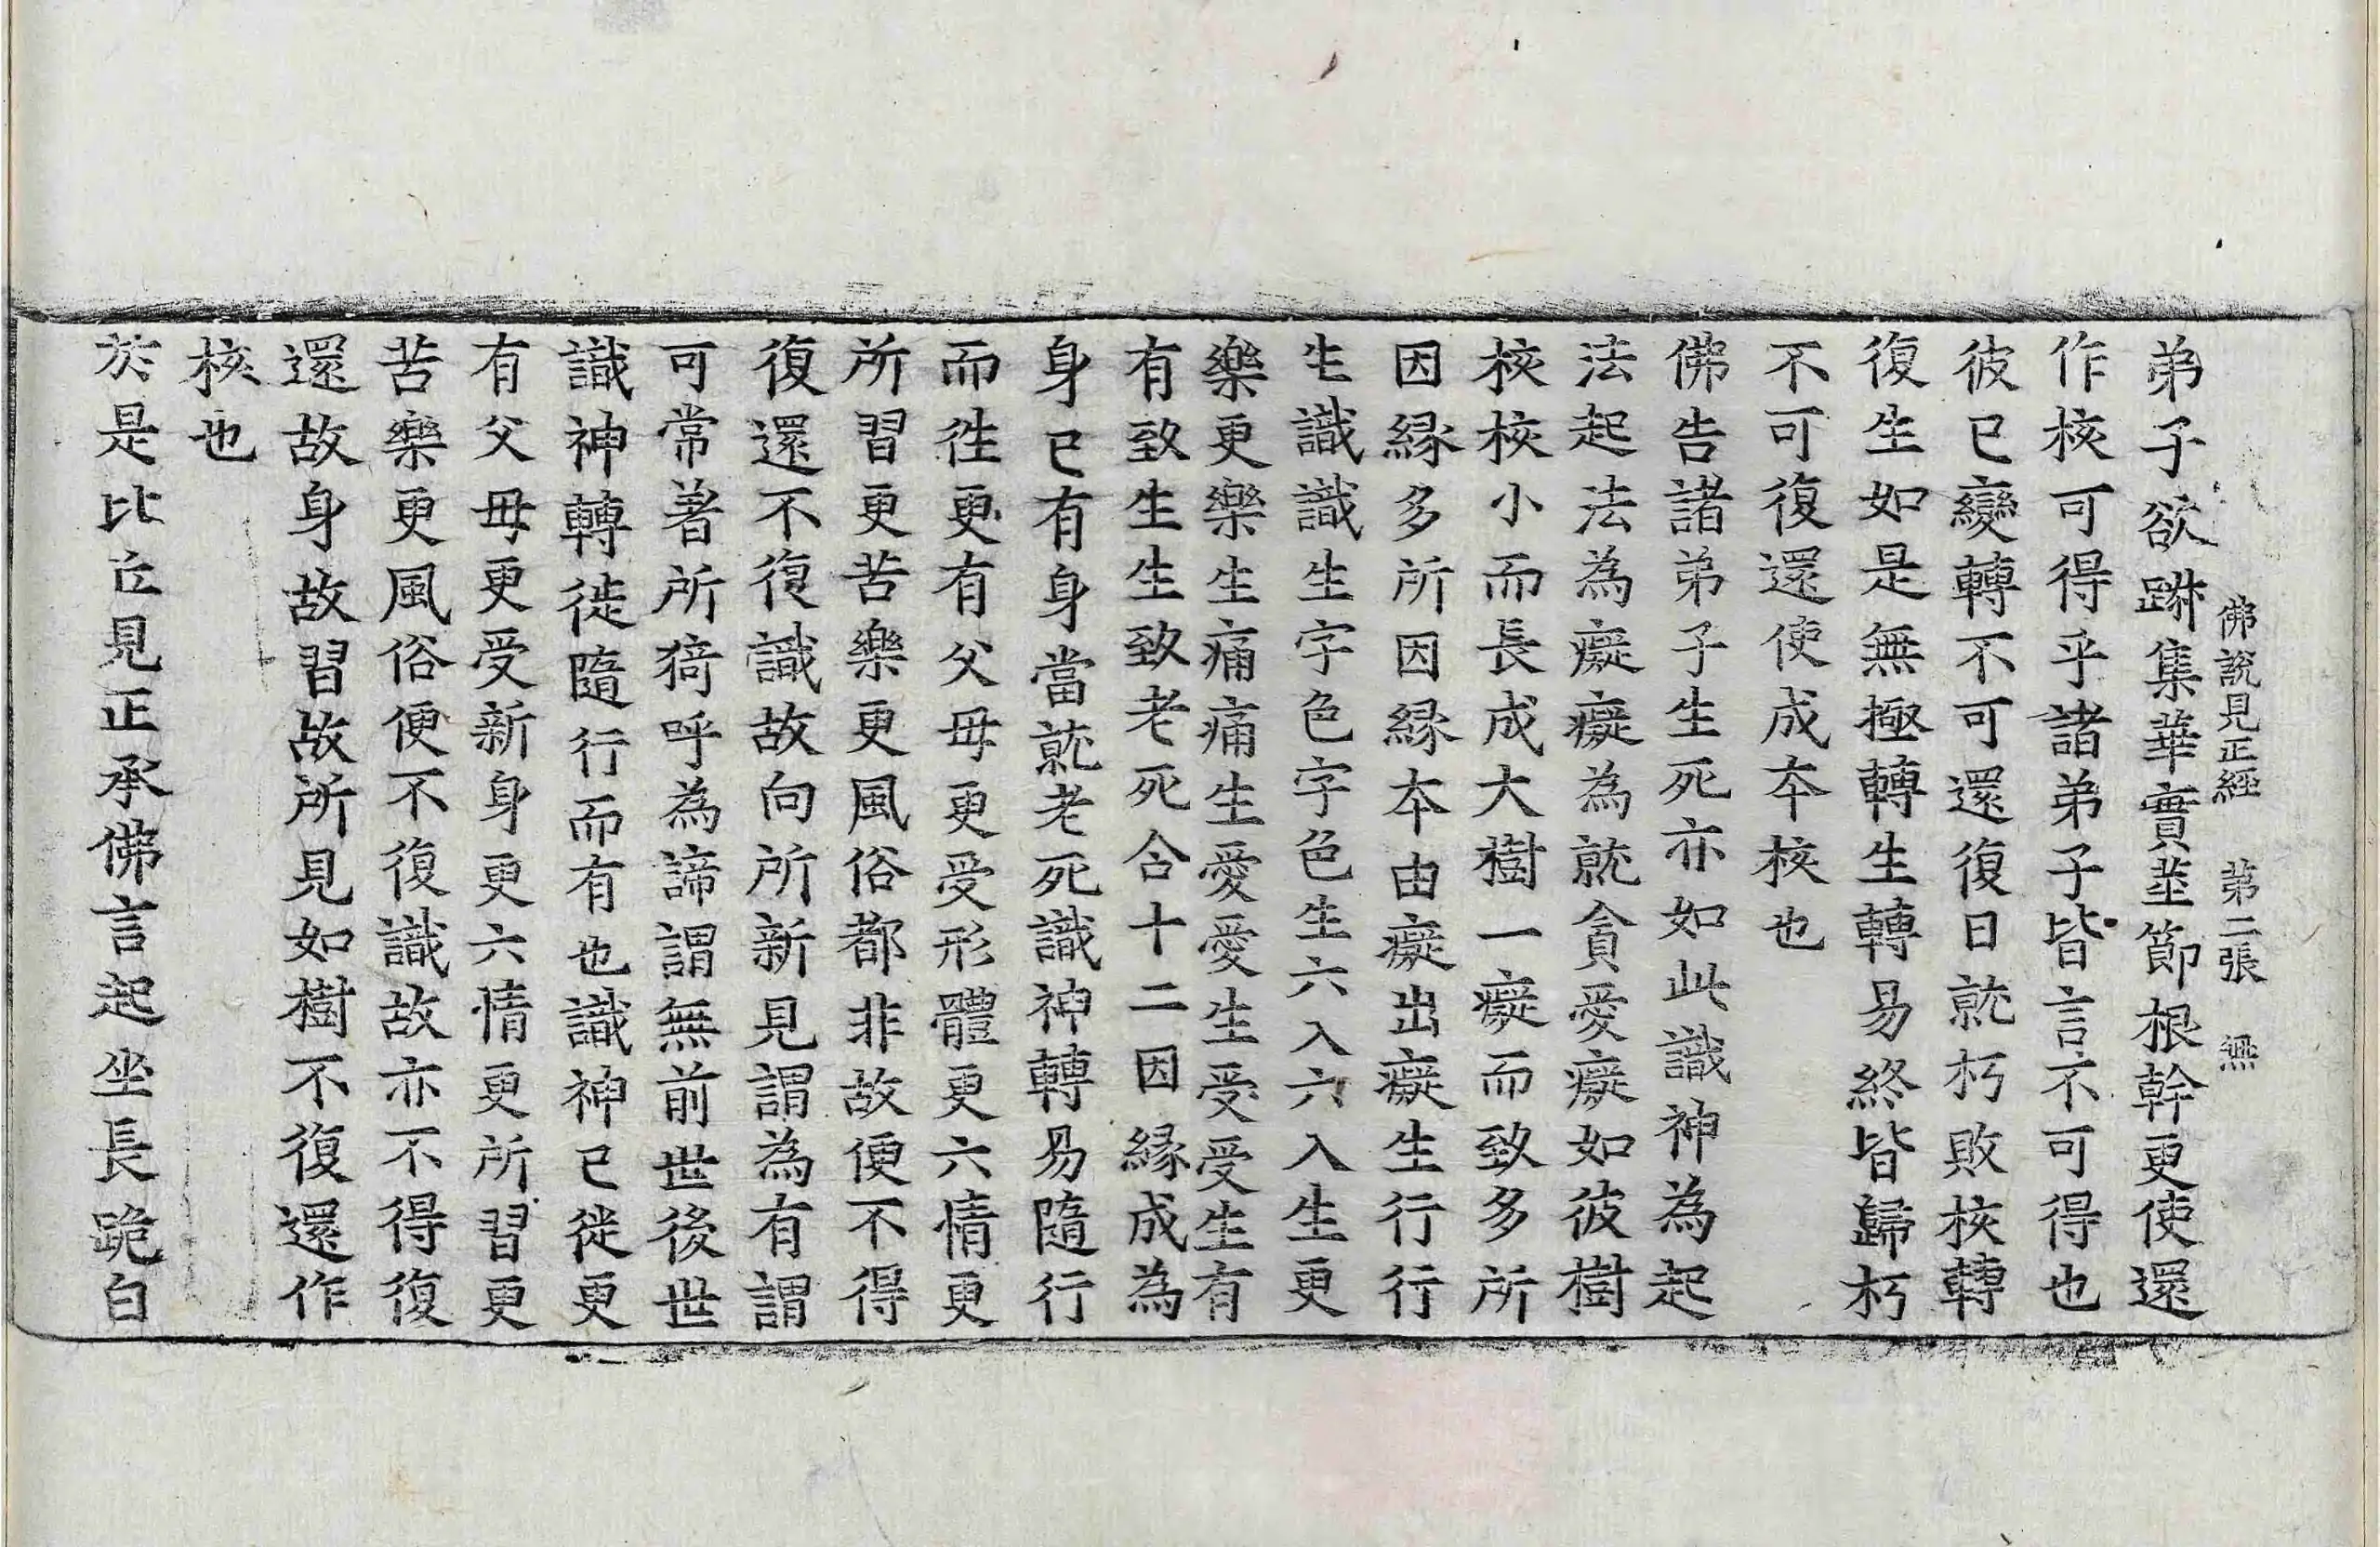 佛說見正經 第二張 無
弟子欲跰集華實莖節根幹更使還
作核可得乎諸弟子皆言不可得也
彼已變轉不可還復日就朽敗核轉
復生如是無極轉生轉易終皆歸朽
不可復還使成本核也
佛告諸弟子生死亦如此識神為起
法起法為癡癡為就貪愛癡如彼樹
核核小而長成大樹一癡而致多所
因緣多所因緣本由癡出癡生行行
生識識生字色字色生六入六入生更
樂更樂生痛痛生愛愛生受受生有
有致生生致老死合十二因緣成為
身已有身當就老死識神轉易隨行
而徃更有父母更受形體更六情更
所習更苦樂更風俗都非故便不得
復還不復識故向所新見謂為有謂
可常著所猗呼為諦謂無前世後世
識神轉徙隨行而有也識神已徙更
有父母更受新身更六情更所習更
苦樂更風俗便不復識故亦不得復
還故身故習故所見如樹不復還作
核也
於是比丘見正承佛言起坐長跪白